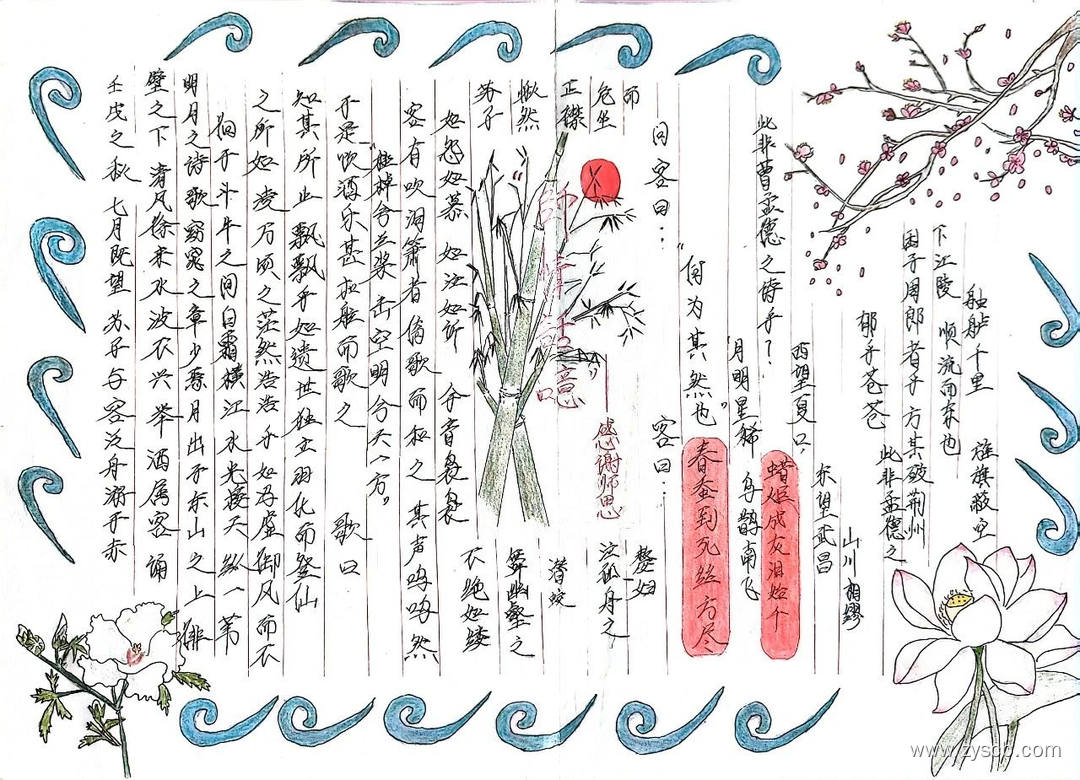 壬戌之秋 七月既望 苏子与客泛舟游于赤
壁之下 清风徐来水波不兴 举酒属客 诵
明月之诗歌窈窕之章少焉月出于东山之上 徘
徊于斗牛之间白霜横江 水光接天纵一苇
之所如凌万顷之茫然浩浩乎如冯虚御风而不
知其所止 飘飘乎如遗世独立羽化而登仙
于是饮酒乐甚扣舷而歌之 歌曰
“桂棹兮兰桨 击空明兮天一方。”
客有吹洞箫者倚歌而和之 其声呜呜然
如怨如慕 如泣如诉 余音袅袅
不绝如缕
舞幽壑之
潜蛟
泣孤舟之
嫠妇
苏子
愀然
正襟
危坐
而
问客曰：
“何为其然也”
客曰：
月明星稀 乌鹊南飞
此非曹孟德之诗乎？
西望夏口
东望武昌
山川相缪
郁乎苍苍
此非孟德之
困于周郎者乎方其破荆州
下江陵 顺流而东也
舳舻千里 旌旗蔽空
感谢师恩
春蚕到死丝方尽
蜡炬成灰泪始干